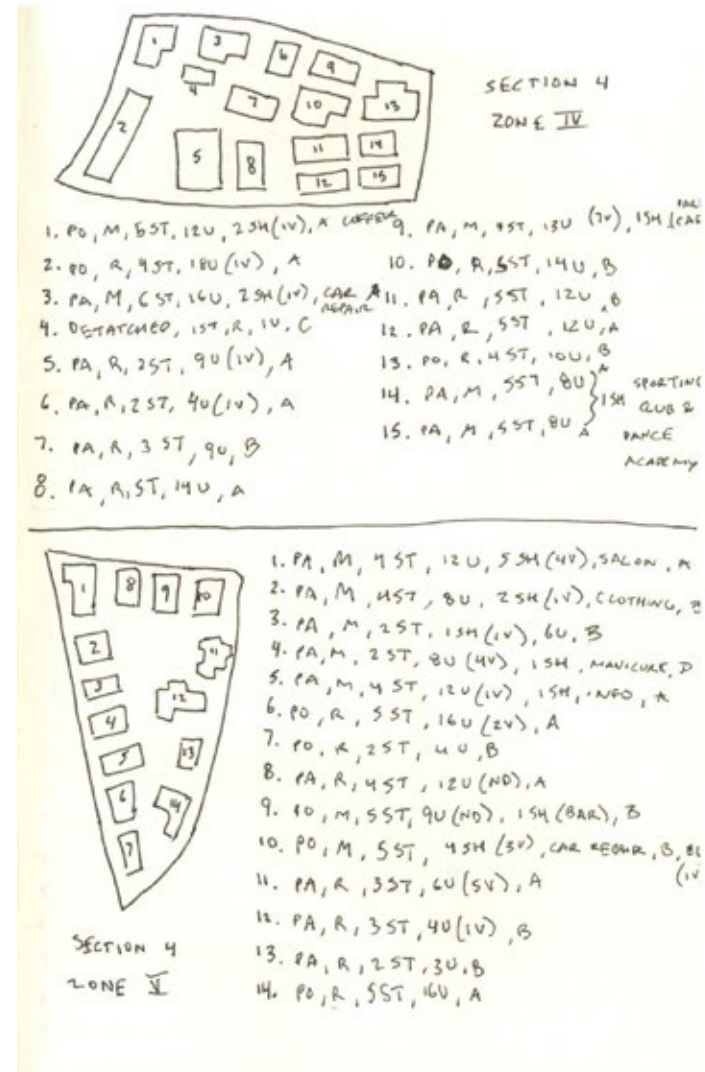 1 3 6 9
4 7 10 13
2 5 8 11 14
12 15
SECTION 4
ZONE IV
1. PO, M, 5ST, 12U, 2SH(1V), A
2. PO, R, 4ST, 18U(1V), A
3. PA, M, 6ST, 16U, 2SH(1V), CAR REPAIR A
4. DETATCHED, 1ST, R, 1U, C
5. PA, R, 2ST, 9U(1V), A
6. PA, R, 2ST, 4U(1V), A
7. PA, R, 3ST, 9U, B
8. PA, R, ST, 14U, A
9. PA, M, 4ST, 13U (7V), 1SH
10. PO, R, 5ST, 14U, B
11. PA, R, 5ST, 12U, B
12. PA, R, 5ST, 12U, A
13. PO, R, 4ST, 10U, B
14. PA, M, 5ST, 8U A
15. PA, M, 5ST, 8U A
1SH SPORTING
CLUB &
DANCE
ACADEMY
1 8 9 10
2 11
3 12
4
5 13
6 14
7
SECTION 4
ZONE V
1. PA, M, 4ST, 12U, 5SH(4V), SALON, A
2. PA, M, 4ST, 8U, 2SH(1V), CLOTHING, B
3. PA, M, 2ST, 1SH(1V), 6U, B
4. PA, M, 2ST, 8U(4V), 1SH, MANICURE, D
5. PA, M, 4ST, 12U(1V), 1SH, INFO, A
6. PO, R, 5ST, 16U(2V), A
7. PO, R, 2ST, 4U, B
8. PA, R, 4ST, 12U(ND), A
9. PO, M, 5ST, 9U(ND), 1SH(BAR), B
10. PO, M, 5ST, 4SH(3V), CAR REPAIR, B,
11. PA, R, 3ST, 6U(5V), A
12. PA, R, 3ST, 4U(1V), B
13. PA, R, 2ST, 3U, B
14. PO, R, 5ST, 16U, A